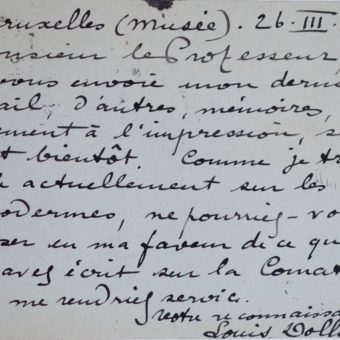 ruxelles (Musée). 26. III.
nsieur le Professeur,
vous envoie mon derni
ail, d'autres, mémoires,
ement à l'impression, s
t bientôt. Comme je tr
actuellement sur les
odermes, ne pourriez-vo
ser en ma faveur de ce qu
avez écrit sur la Comat
me rendriez service.
Votre reconnaissa
Louis Doll